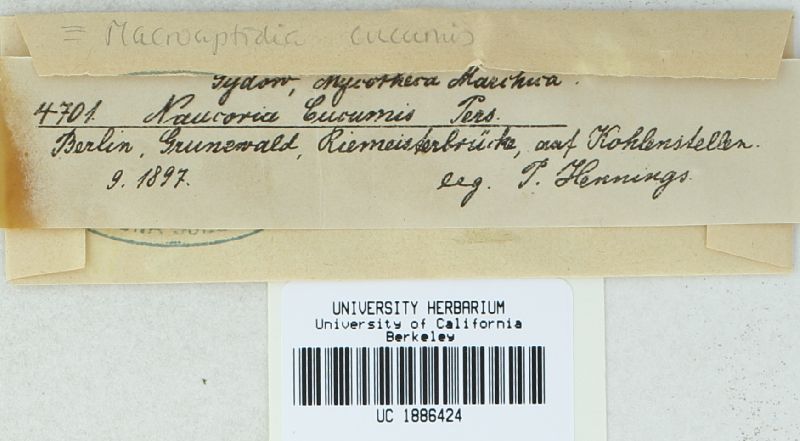 = Macrocystidia cucumis
Sydow, Mycotheca Marchica.
4701. Naucoria Cucumis Pers.
Berlin, Grunewald, Riemeisterbrücke, auf Kohlenstellen.
9. 1897. leg. P. Hennings.
UNIVERSITY HERBARIUM
University of California
Berkeley
UC 1886424